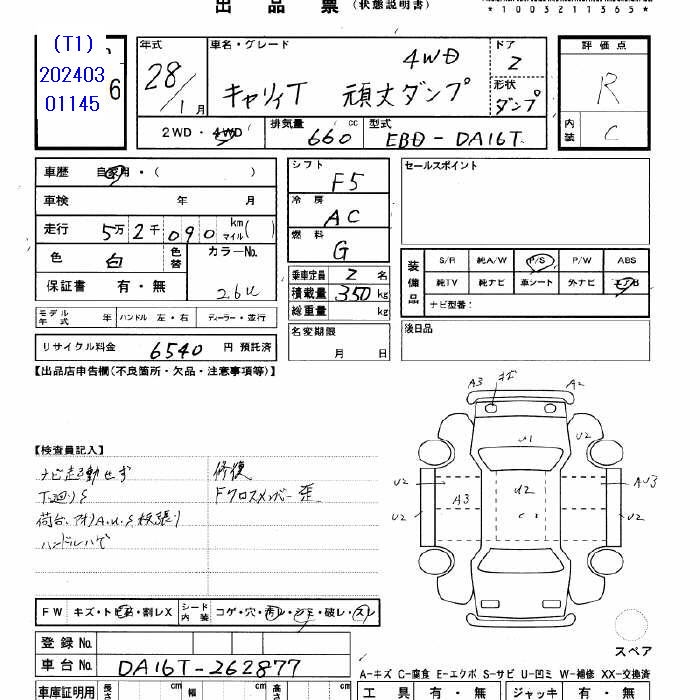 出品票 (状態説明書)
*1003211365*
(T1)
202403
01145
6
年式 28/1月
車名・グレード 4WD
キャリイT 頑丈ダンプ
ドア 2
形状 ダンプ
評価点 R
内装 C
2WD・4WD
排気量 660 cc
型式 EBD-DA16T
車歴 自家用・( )
車検 年 月
走行 5万2千090 km マイル( )
色 白 色替
カラーNo. 26U
保証書 有・無
シフト F5
冷房 AC
燃料 G
乗車定員 2名
積載量 350kg
総重量 kg
名変期限 月 日
セールスポイント
装備品 S/R 純A/W P/S P/W ABS
純TV 純ナビ 車シート 外ナビ エアB
ナビ型番:
後日品
モデル年式 年 ハンドル 左・右 ディーラー・並行
リサイクル料金 6540 円 預託済
【出品店申告欄(不良箇所・欠品・注意事項等)】
【検査員記入】
ナビ起動せず
下廻りS
荷台、アオリA.U.S板張り
ハンドルハゲ
修復
Fクロスメンバー歪
A3 キズ A2
U2 U1 U2
U2 A3 U2 AU3
U2 U2
スペア
FW キズ・トビ石・割レX シート内装 コゲ・穴・汚レ・シミ・破レ・スレ
登録No.
車台No. DA16T-262877
A-キズ C-腐食 E-エクボ S-サビ U-凹ミ W-補修 XX-交換済
車庫証明用 長さ cm 幅 cm 高さ cm
工具 有・無 ジャッキ 有・無